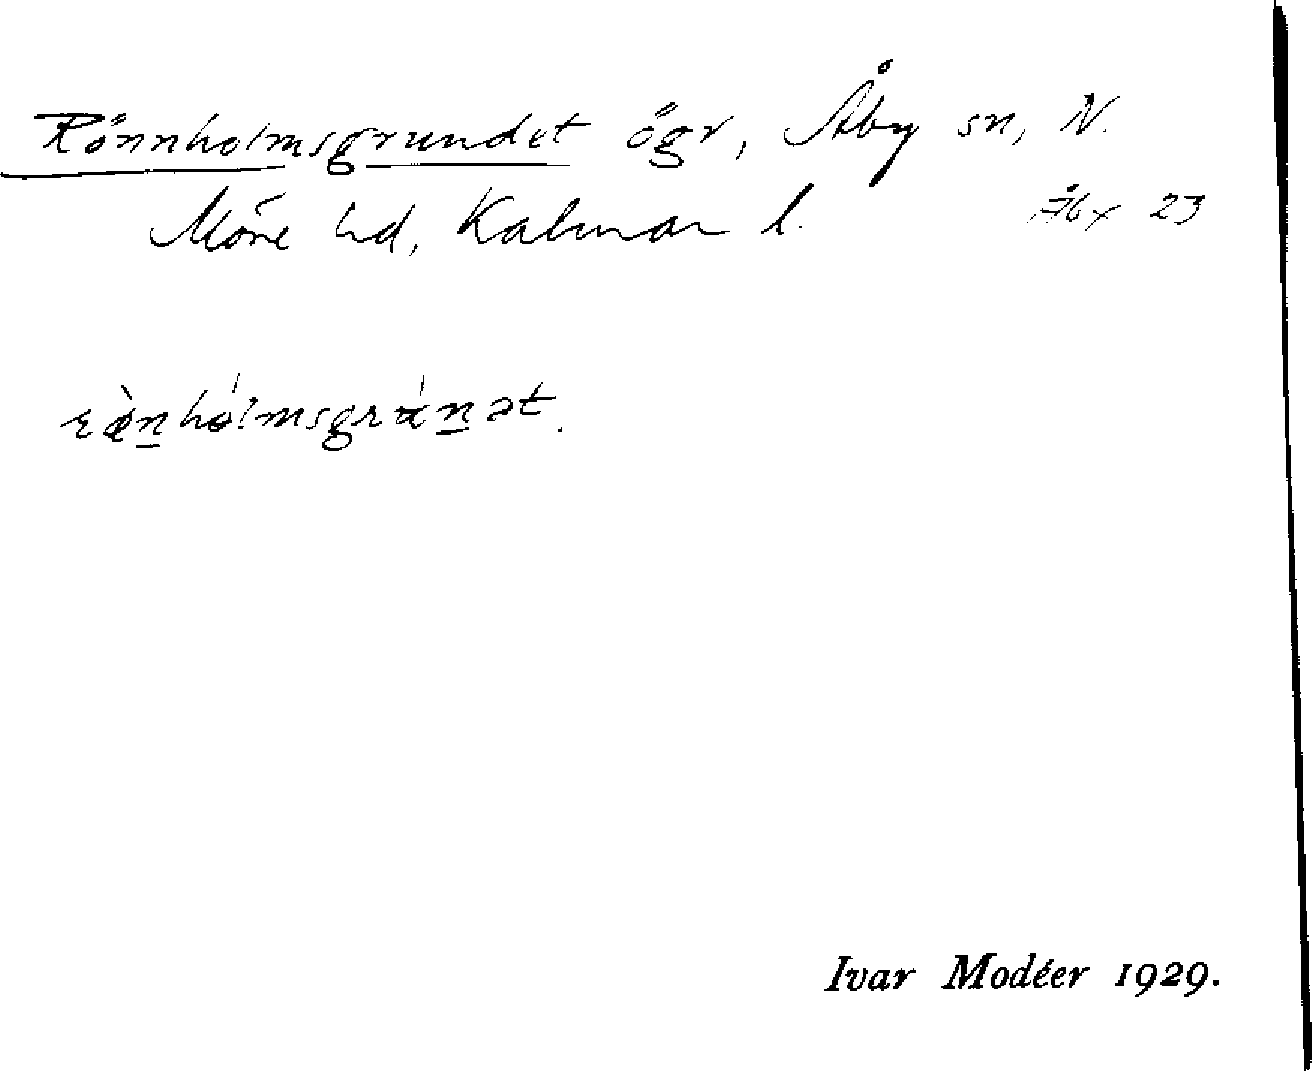 Rönnholmsgrundet ögr, Åby sn, N.
Möre hd, Kalmar l. Åby 23
rænhólmsgránət.
Ivar Modéer 1929.